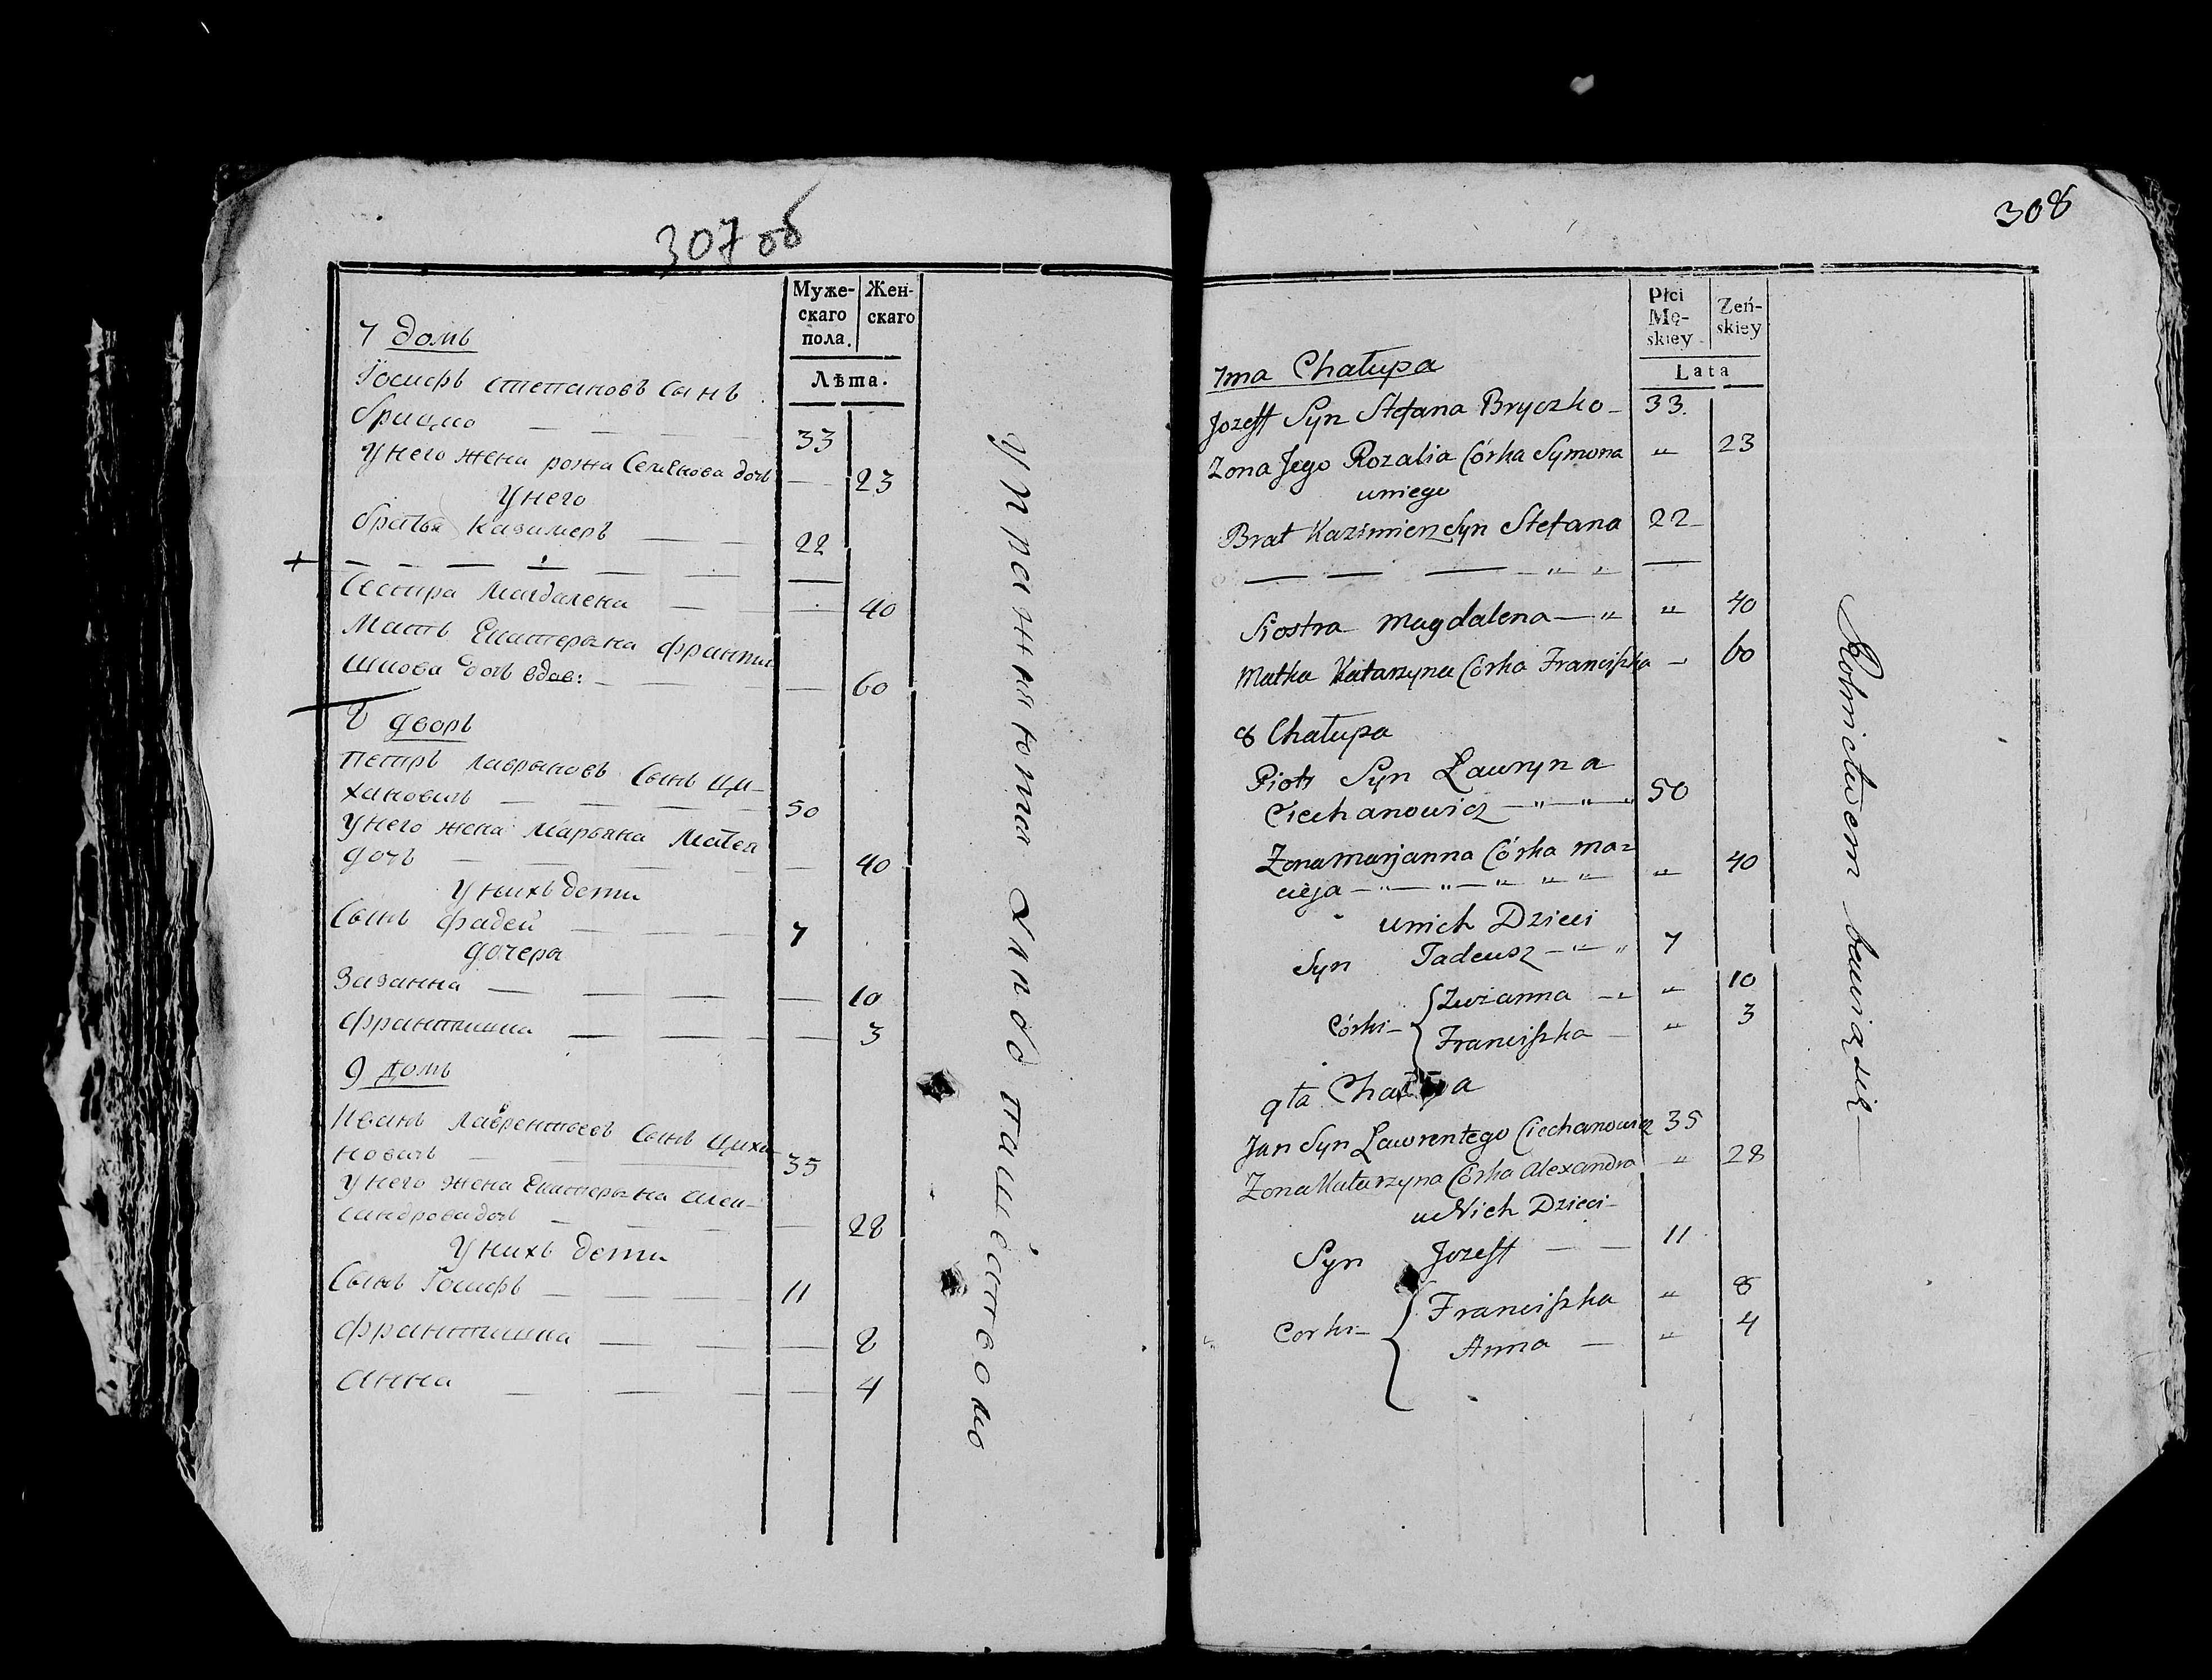 307 об
Муже-
скаго
пола.
Жен-
скаго
Лѣта.
7 домъ
Іосифъ степановъ сынъ
брицко — — — — 33
У него жена рожа Семёнова дочь — 23
У него
братья Казимеръ — — 22
+ — — — — — —
Сестра Магдалена — — — 40
Мать Екатерына франти
шкова дочь вдов: — — — — 60
8 дворъ
петръ лаврыновъ Сынъ Ци-
хановичъ — — — — 50
У него жена Марьяна Матея
дочь — — — — — 40
У нихъ дети
Сынъ фадей — — — 7
дочера
Зазанна — — — — — 10
франтишка — — — — 3
9 домъ
Иванъ лаврентьевъ Сынъ Циха
новичъ — — — 35
У него жена Екатерына алек-
сандрова дочь — — — — 28
У нихъ дети
Сынъ Іосифъ — — — — 11
франтишка — — — 8
анна — — — — 4
Упражняются хлѣбопашествомъ
308
Płci
Mę-
skiey
Zeń-
skiey
Lata
7ma Chałupa
Jozeff Syn Stefana Bryczko — 33.
Zona Jego Rozalia Córka Symona " 23
uniego
Brat Kazimierz Syn Stefana 22
— — — — " " —
Siostra Magdalena — " " 40
Matka Katarzyna Córka Franciszka — 60
8 Chałupa
Piotr Syn Lawryna
Ciechanowicz — " — " — " 50
Zona Marjanna Córka Ma=
cieja — " — " — " " " " 40
unich Dzieci
Syn Tadeusz — " — " 7
Córki — { Zuzanna — " " 10
Franciszka — " 3
9ta Chałupa
Jan Syn Lawrentego Ciechanowicz 35
Zona Katarzyna Córka Alexandra " 28
u Nich Dzieci —
Syn Jozeff — — 11
Corki — { Franciszka " 8
Anna — " 4
Rolnictwem bawią się —